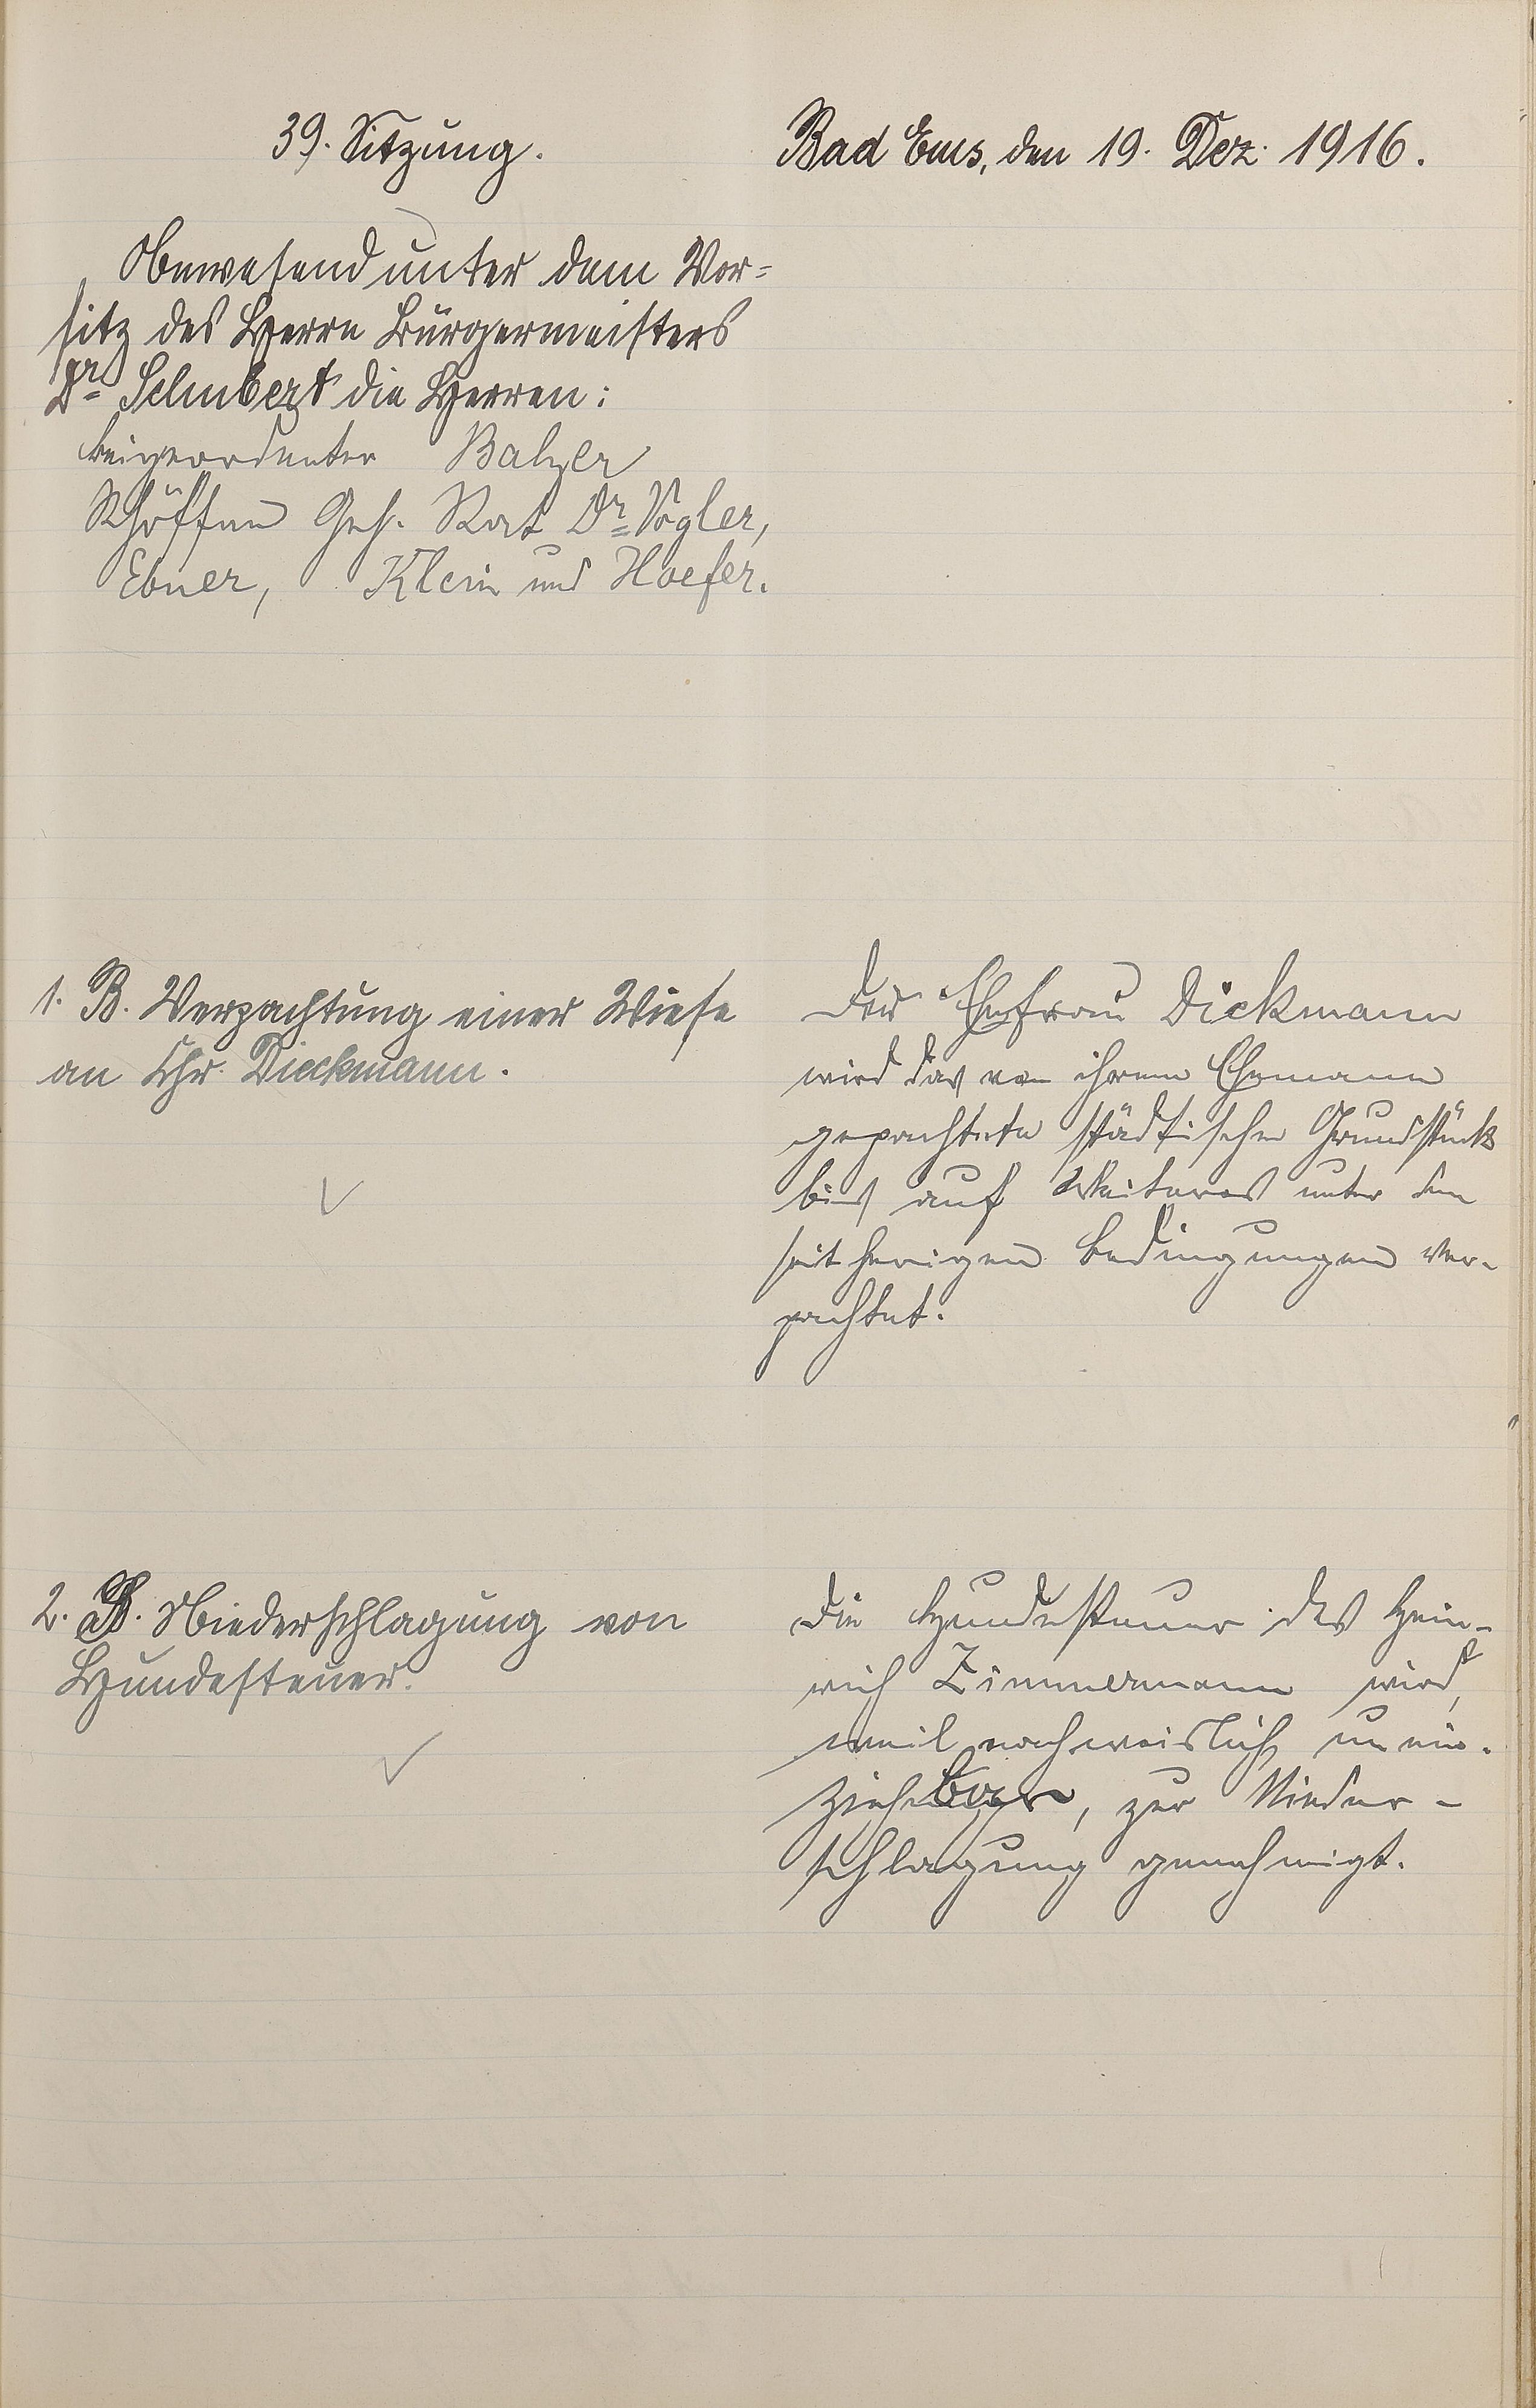 39. Sitzung.
Bad Ems, den 19. Dez. 1916.
Anwesend unter dem Vor=
sitz des Herrn Bürgermeisters
Dr. Schubert die Herren:
Beigeordneter Balzer
Schöffen Geh. Rat Dr. Vogler,
Ebner, Klein und Hoefer.
1. B. Verpachtung einer Wiese
an Chr. Dieckmann.
Der Ehefrau Dickmann
wird das von ihrem Ehemann
gepachtete städtische Grundstück
bis auf Weiteres unter den
seitherigen Bedingungen ver-
pachtet.
2. B. Niederschlagung von
Hundesteuer.
Die Hundesteuer des Hein-
rich Zimmermann wird,
weil nachweislich unein-
ziehbar, zur Nieder-
schlagung genehmigt.